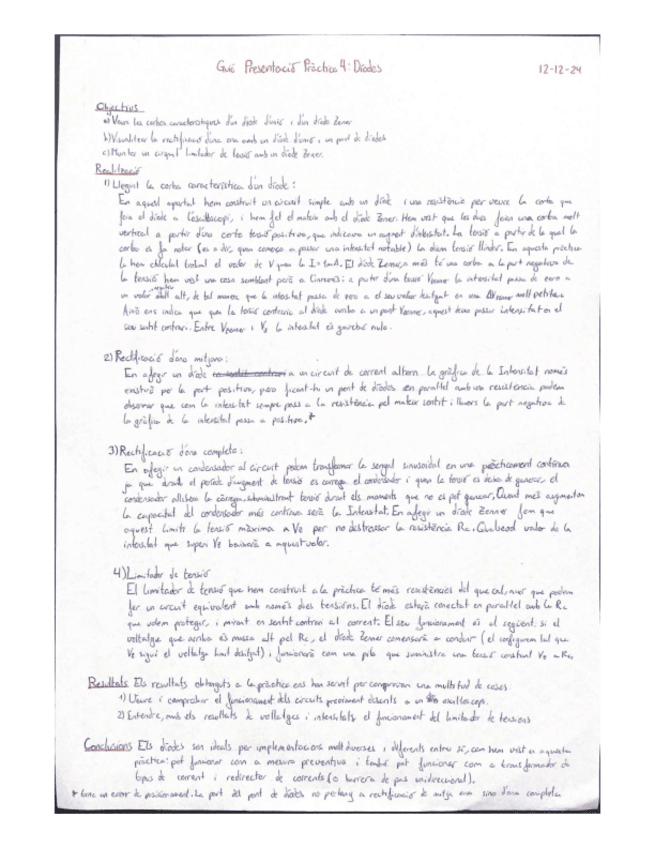 Guió Presentació Pràctica 4: Díodes
12-12-24
Objectius
a) Veure les corbes característiques d'un díode d'unió i d'un díode Zener
b) Visualitzar la rectificació d'una ona amb un díode d'unió i un pont de díodes
c) Muntar un circuit limitador de tensió amb un díode Zener.
Realització
1) Llegint la corba característica d'un díode:
En aquest apartat hem construit un circuit simple amb un díode i una resistència per veure la corba que
feia el díode a l'oscil·loscopi, i hem fet el mateix amb el díode Zener. Hem vist que les dues feien una corba molt
vertical a partir d'una certa tensió positiva, que indicava un augment d'intensitat. La tensió a partir de la qual la
corba es fa notar (es a dir, quan comença a passar una intensitat notable) la diem tensió llindar. En aquesta pràctica
la hem calculat trobant el valor de V quan la I=1mA. El díode Zener, a més té una corba a la part negativa de
la tensió hem vist una cosa semblant però a l'inrevés: a partir d'una tensió Vzener la intensitat passa de zero a
un valor negatiu molt alt, de tal manera que la intensitat passa de zero a el seu valor desitjat en una ΔVzener molt petita.
Això ens indica que quan la tensió contraria al díode arriba a un punt Vzener, aquest deixa passar intensitat en el
seu sentit contrari. Entre Vzener i Vγ la intensitat és gairebé nul·la.
2) Rectificació d'ona mitjana:
En afegir un díode a un circuit de corrent altern la gràfica de la Intensitat només
existirà per la part positiva, però ficant-hi un pont de díodes en paral·lel amb una resistència podem
observar que com la intensitat sempre passa a la resistència pel mateix sentit i llavors la part negativa de
la gràfica de la intensitat passa a positiva.*
3) Rectificació d'ona completa:
En afegir un condensador al circuit podem transformar la senyal sinusoidal en una pràcticament contínua
ja que durant el període d'augment de tensió es carrega el condensador i quan la tensió es deixa de generar, el
condensador allibera la càrrega, subministrant tensió durant els moments que no es pot generar. Quant més augmentem
la capacitat del condensador més contínua serà la Intensitat. En afegir un díode Zenner fem que
aquest limiti la tensió màxima a Ve per no destrossar la resistència Rc. Qualsevol valor de la
intensitat que superi Ve baixarà a aquest valor.
4) Limitador de tensió
El limitador de tensió que hem construit a la pràctica té més resistències del que cal, ja que podem
fer un circuit equivalent amb només dues tensions. El díode estarà conectat en paral·lel amb la Rc
que volem protegir, i mirant en sentit contrari al corrent. El seu funcionament és el següent: si el
voltatge que arriba és massa alt pel Rc, el díode Zener començarà a conduir (el configurem tal que
Ve sigui el voltatge límit desitjat) i funcionarà com una pila que suministra una tensió constant Ve a Rc.
Resultats Els resultats obtinguts a la pràctica ens han servit per comprovar una multitud de coses
1) Veure i comprobar el funcionament dels circuits previament descrits a un oscil·loscopi.
2) Entendre, amb els resultats de voltatges i intensitats el funcionament del limitador de tensions
Conclusions Els díodes son ideals per implementacions molt diverses i diferents entre si, com hem vist en aquesta
pràctica: pot funcionar com a mesura preventiva i també pot funcionar com a transformador de
tipus de corrent i redirector de corrents (o barrera de pas unidireccional).
* tinc un error de posicionament. La part del pont de díodes no pertany a rectificació de mitja ona sino d'ona completa